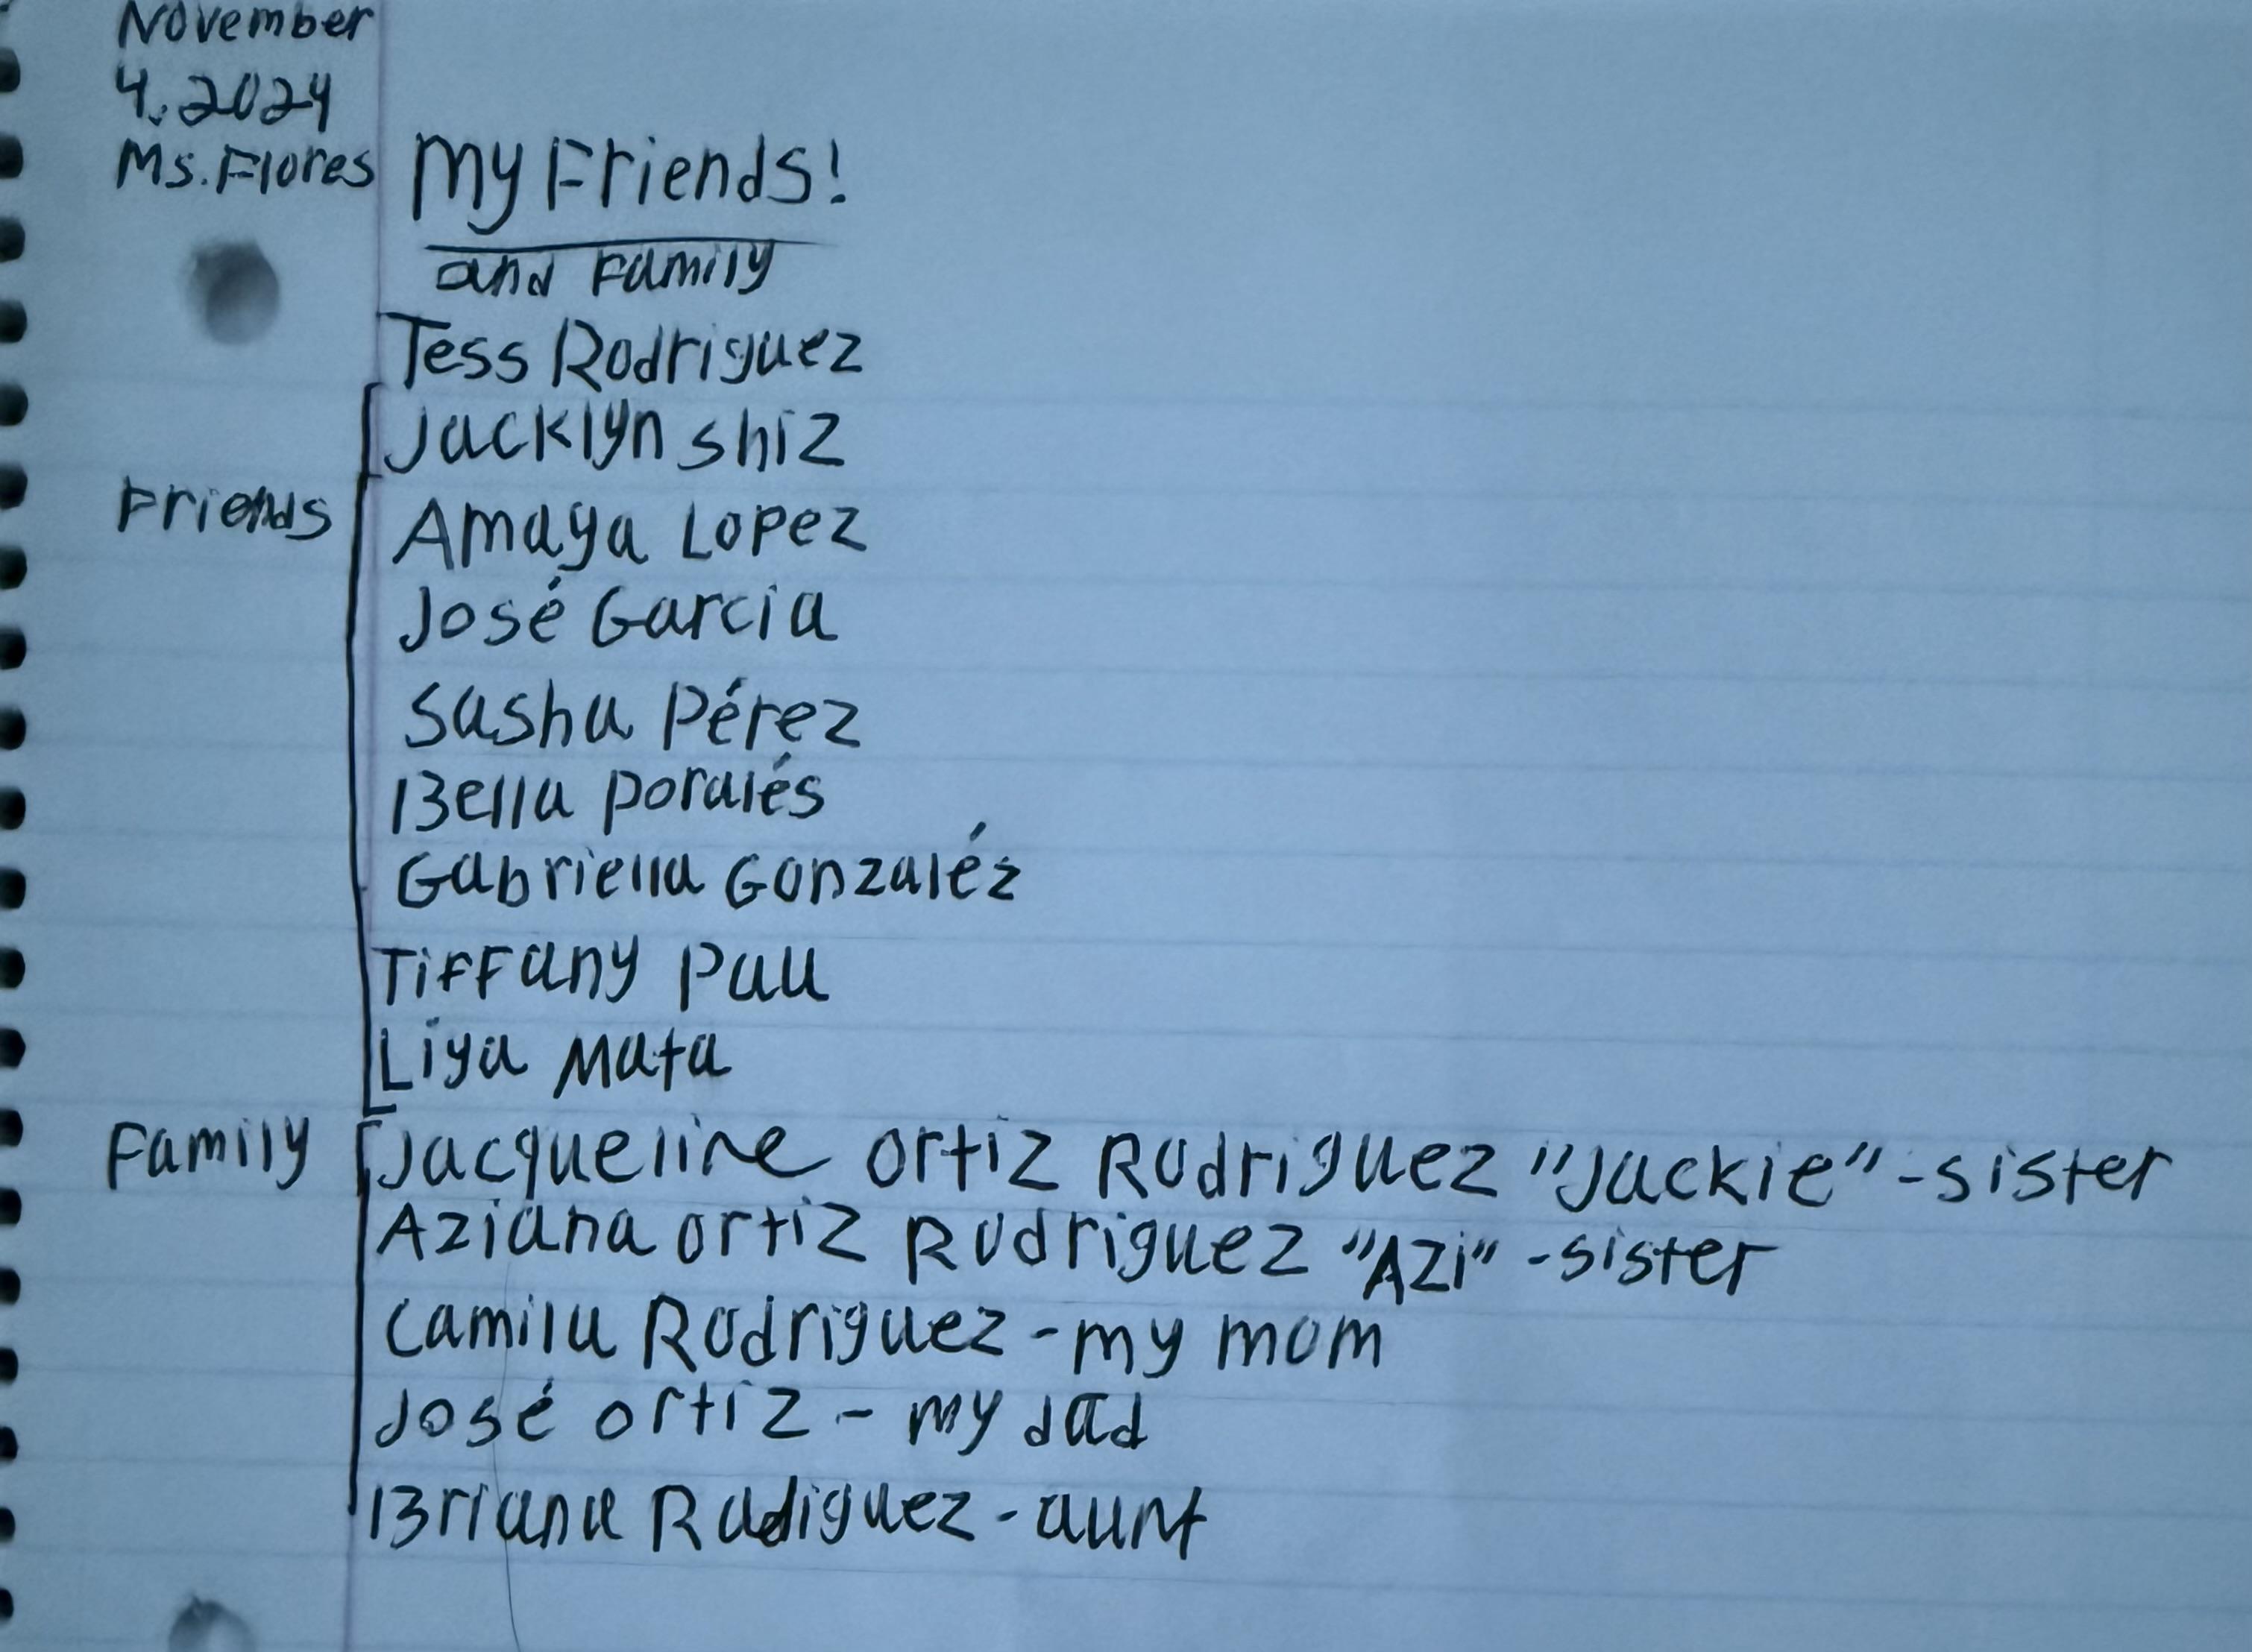 November
4, 2024
Ms. Flores
My Friends!
and Family
Tess Rodriguez
Jacklyn Shiz
Friends
Amaya Lopez
José Garcia
Sasha Pérez
Bella Poralés
Gabriella Gonzaléz
Tiffany Pau
Liya Mata
Family
Jacqueline Ortiz Rodriguez "Jackie" - sister
Aziana Ortiz Rodriguez "Azi" - sister
Camila Rodriguez - my mom
José Ortiz - my dad
Briana Radiguez - aunt